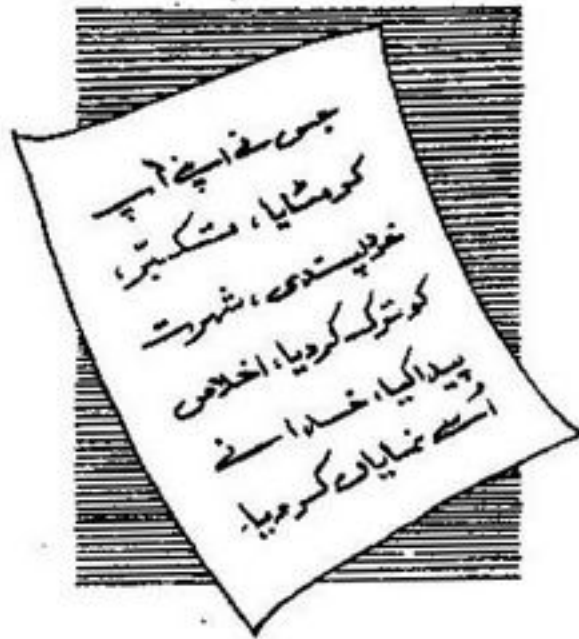 جس نے اپنے آپ
کو مٹایا، تکبّر،
خود پسندی، شہرت
کو ترک کر دیا، اخلاص
پیدا کیا، خدا نے
اُسے نمایاں کر دیا۔